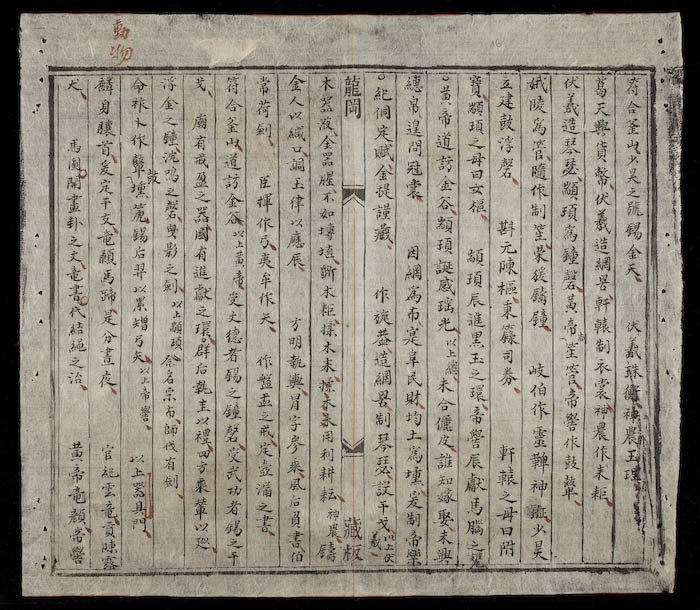 動物
16
符合釜山少昊之號錫金天 伏羲珠衡神農玉理
葛天興貨幣伏羲造綱罟軒轅制衣裳神農作耒耜
伏羲造琴瑟顓頊為鐘磬黃帝制笙管帝嚳作鼓鞞
娥陵為管隨作制笙後鑄鐘 岐伯作靈鞞神鉦少昊
立建鼓浮磬 斟元陳樞東籙司券 軒轅之母曰附
寶顓頊之母曰女樞 顓頊辰進黑玉之環帝嚳辰獻馬腦之甕
黃帝道訪金谷顓頊誕感瑤光以上總未合儷皮誰知嫁娶未興
總帛遑問冠裳 因綱為市寔阜民財均土為壎爰制帝樂
紀侗床賦金提謹藏 作旋蓋造綱罟制琴瑟設干戈以上伏羲
龍岡 藏板
木器液金器腥不如塼埴斷木耜揉木耒用利耕耘神農鑄
金人以緘口調玉律以應辰 方明執輿冐字參乘風后負書伯
常荷劍 臣揮作弓夷牟作矢 作盤盂之戒定壺漏之書
符合釜山道訪金谷以上黃帝受文德者錫之鐘磬受武功者錫之干
戈 廟有戒盈之器國有進獻之環群后執圭以禮四方乘以
浮金之鐘沈鳴之磬曳影之劍以上顓頊祭名宗布師伐有劍
命柞卜作鼓鞞壎箎錫后羿以累矰弓矢以上帝嚳 以上器具門
麟身驤首爰定干支竜顏馬蹄是分晝夜 官紀雲竜貢陳露
犬 馬圖開畫卦之文竜書代結繩之治 黃帝竜顏嚳